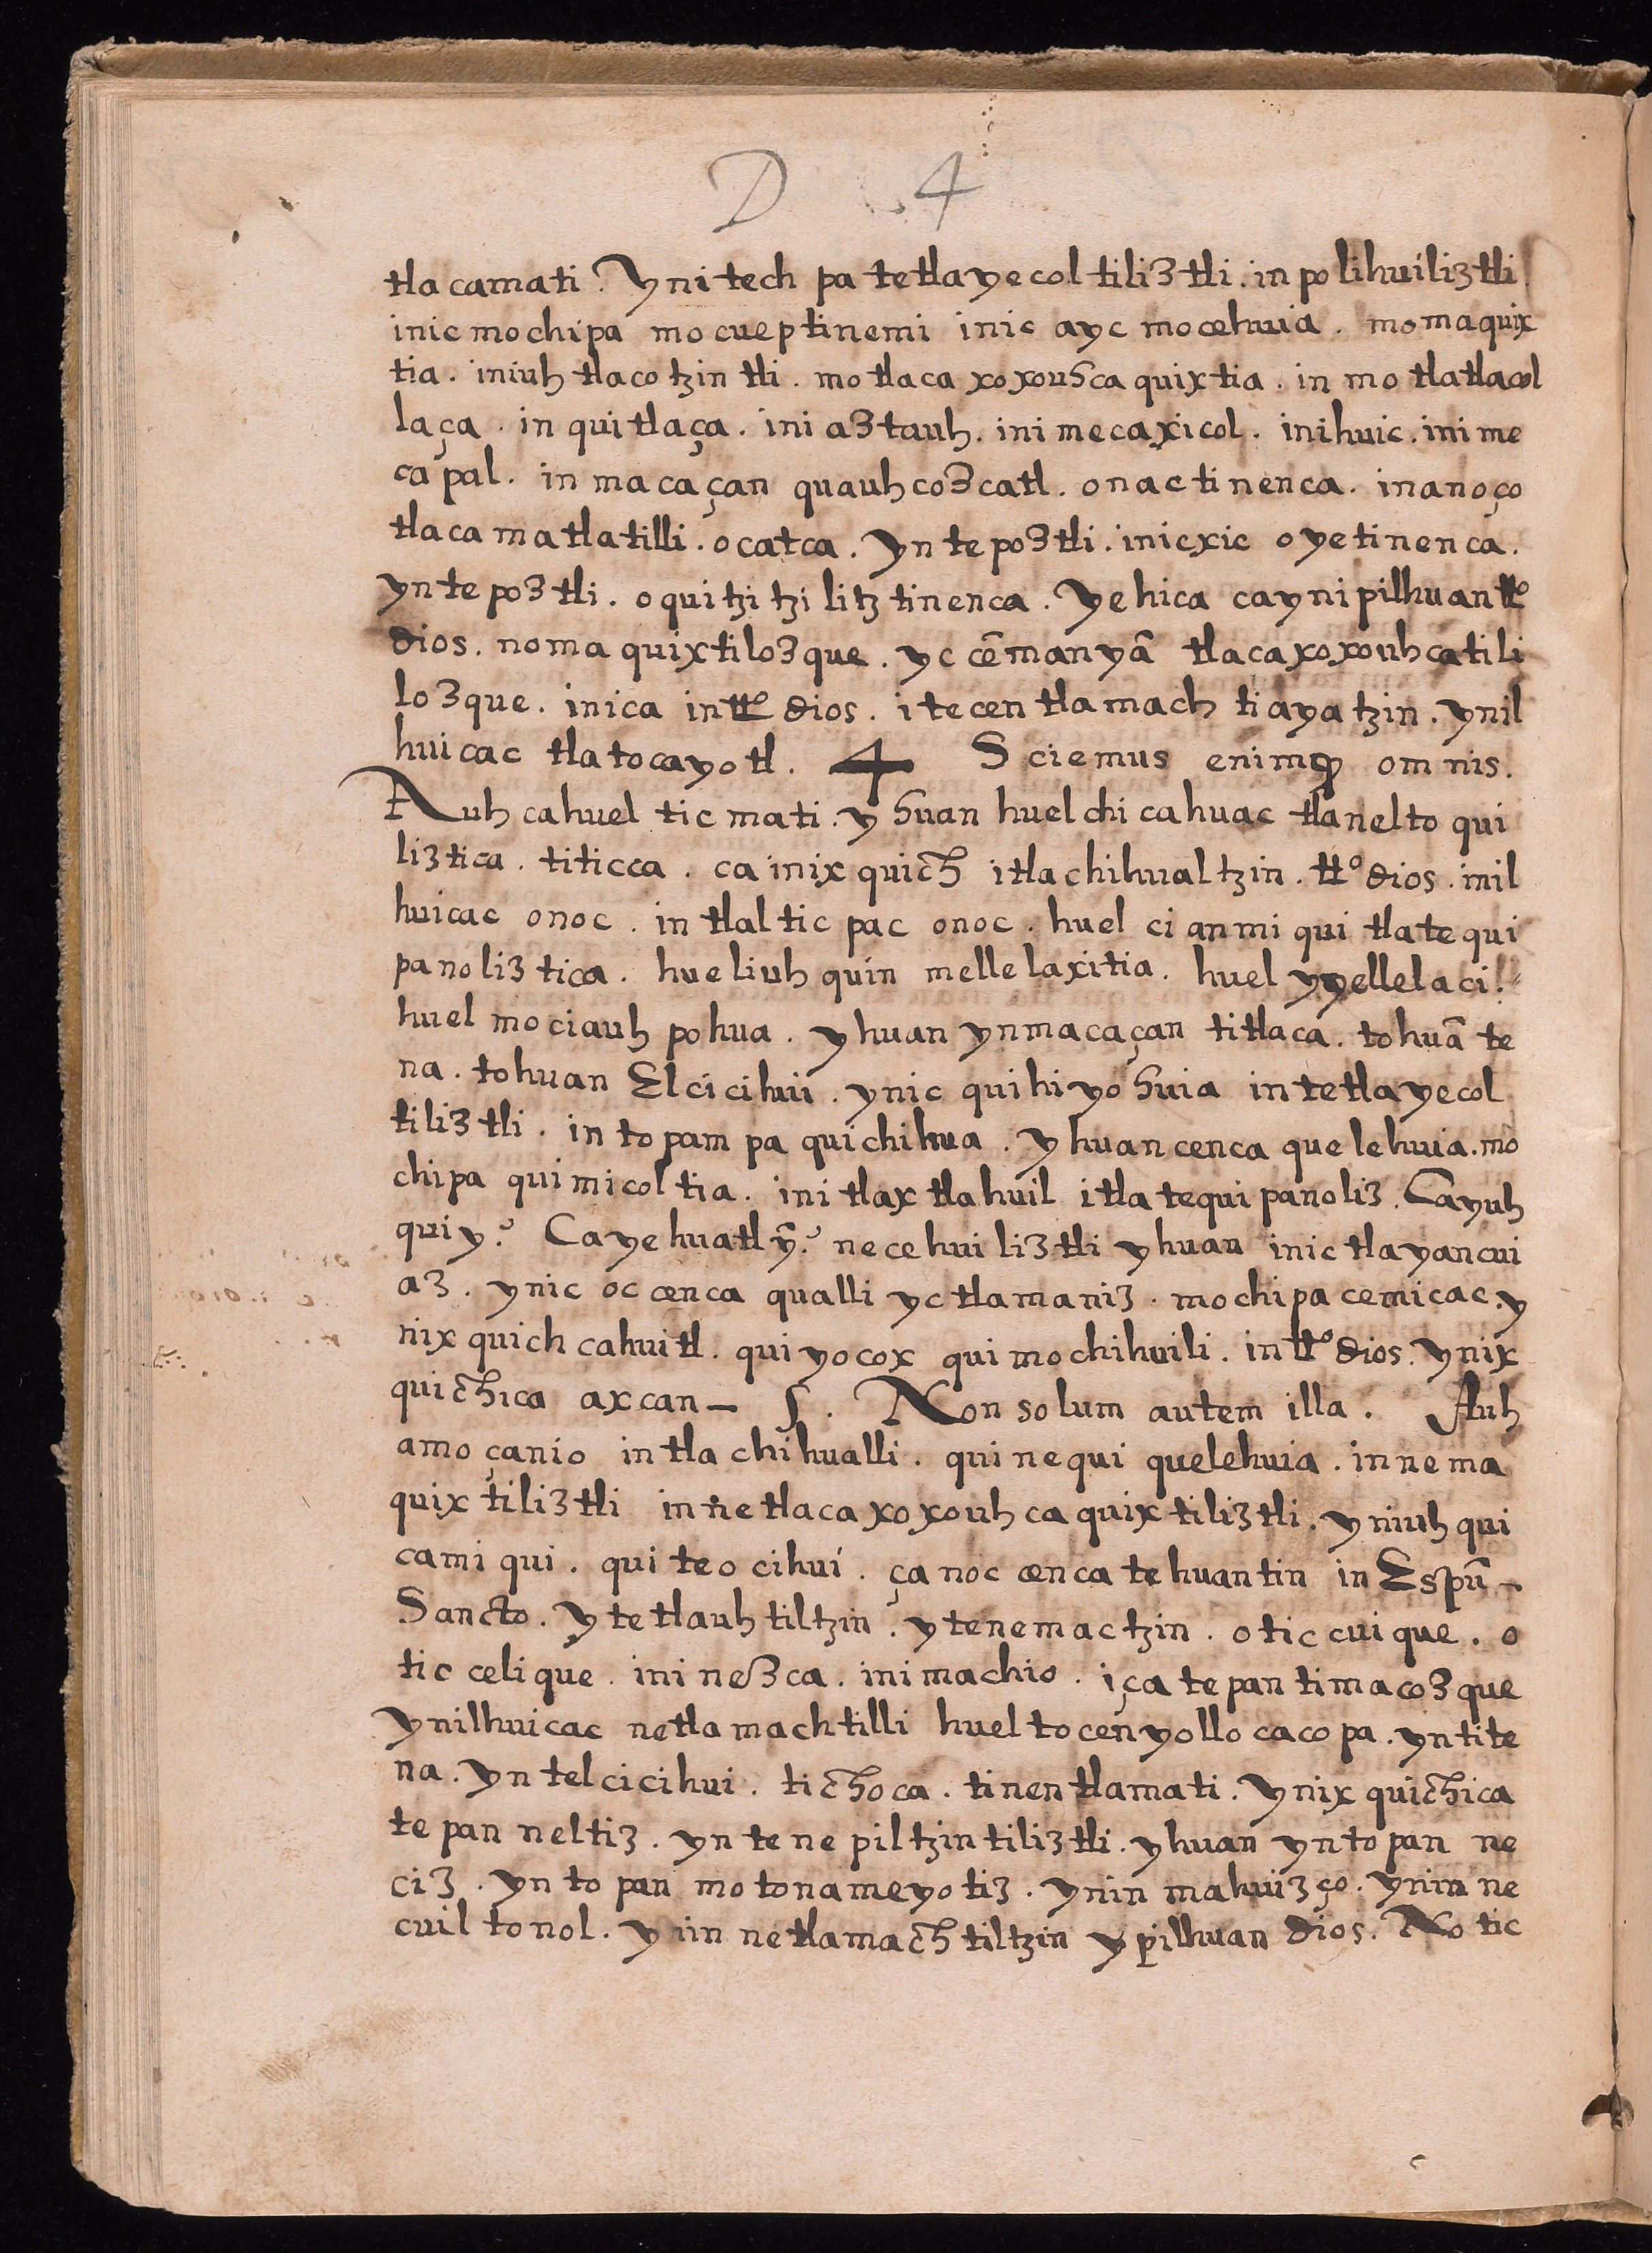 D 4
tlacamati. Ynitech pa tetlayecoltiliztli. in polihuiliztli
inic mochipa mocueptinemi inic ayc mocehuia. momaquix
tia. iniuh tlacotzin tli. motlaca xoxouhca quixtia. in mo tlatlacol
laça. in quitlaça. ini aztauh. ini mecaxicol. inihuic. inime
capal. in macaçan quauhcozcatl. onactinenca. inanoço
tlacamatlatilli. ocatca. Yn tepoztli. inicxic oyetinenca.
yn tepoztli. oquitzitzilitztinenca. Yehica caynipilhuan ttº
dios. nomaquixtilozque. yc cẽmanyã tlacaxoxouhcatili
lozque. inica inttº dios. itecentlamachtiayatzin. ynil
huicac tlatocayotl. 4 Sciemus enimq omnis.
Auh cahuel ticmati. yhuan huelchicahuac tlaneltoqui
liztica. titicca. ca inixquich itlachihualtzin. ttº dios. inil
huicac onoc. in tlalticpac onoc. huel cianmiqui tlatequi
panoliztica. hueliuhquin mellelaxitia. huel yyellelaci.
huel mociauhpohua. yhuan ynmacaçan titlaca. tohuã te
na. tohuan Elcicihui. ynic quihiyohuia intetlayecol
tiliztli. in topampa quichihua. yhuan cenca quelehuia. mo
chipa quimicoltia. ini tlaxtlahuil itlatequipanoliz. Cayuh
quiy? Cayehuatlỹ? necehuiliztli yhuan inic tlayancui
az. ynic oc cenca qualli yc tlamaniz. mochipa cemicac. y
nixquich cahuitl. quiyocox quimochihuili. inttº dios. ynix
quichica axcan— 5. Non solum autem illa. Auh
amo çanio intlachihualli. quinequi quelehuia. innema
quixtiliztli innetlacaxoxouhcaquixtiliztli. yniuhqui
camiqui. quiteocihui. çanoc cenca tehuantin in Espũ—
Sancto. Ytetlauhtiltzin. ytenemactzin. oticcuique. o
ticcelique. ini nezca. inimachio. içatepan timacozque
ynilhuicac netlamachtilli huel tocenyollocacopa. yntite
na. yntelcicihui. tichoca. tinentlamati. Ynixquichica
tepan neltiz. yn tenepiltzintiliztli. yhuan yntopan ne
ciz. yn topan motonameyotiz. ynin mahuizço. ynin ne
cuiltonol. ynin netlamachtiltzin ypilhuan dios. No tic